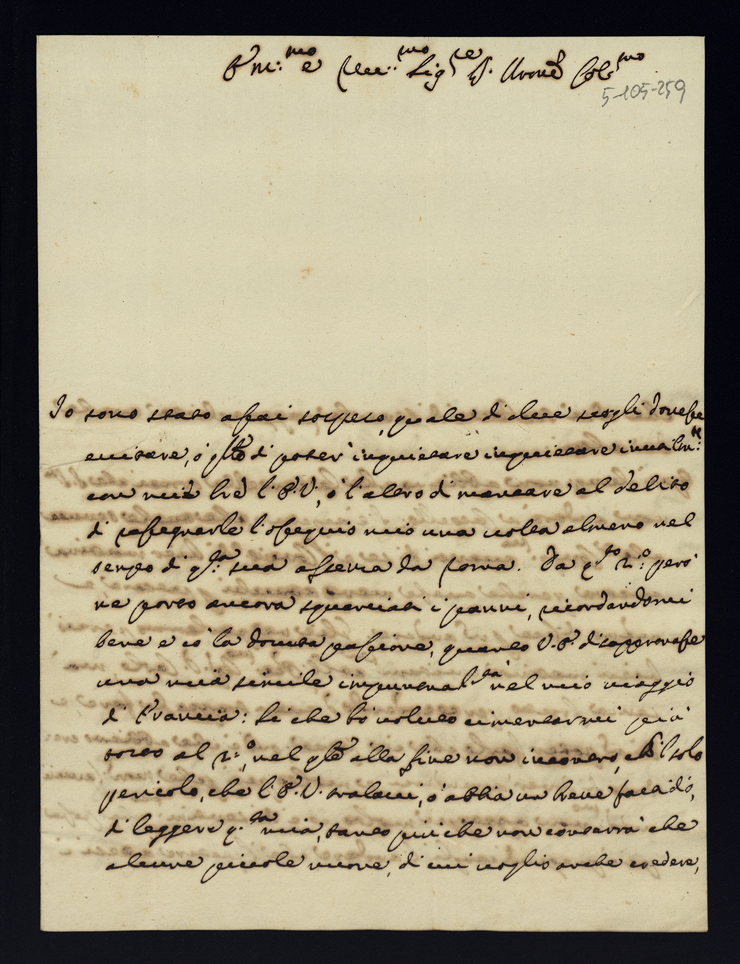 Em:mo e Rev:mo Sig:re P. Uron Col:mo
5-105-259
Io sono stato assai sospeso, quale di due scogli dovesse
evitare, ò q.to di poter' inquietare inquietare inutilm:te
con mia l'E.V., ò l'altro di mancare al debito
di rassegnarle l'ossequio mio una volta almeno nel
tempo di q.ta sua assenza da Roma. Da q.to 2.o però
ne porto ancora squarciati i panni, ricordandomi
bene e cõ la dovuta passione, quanto V.E. disapprovasse
una mia simile impuntual.tà nel mio viaggio
di Francia: Si che hò voluto cimentarmi più
tosto al 2.o, nel q.le alla fine non incontro, ch'il solo
pericolo, che l'E.V. tralasci, ò abbia un breve fastidio,
di leggere q.ta mia, tanto più che non conterrà che
alcune piccole nuove, di cui voglio anche credere,